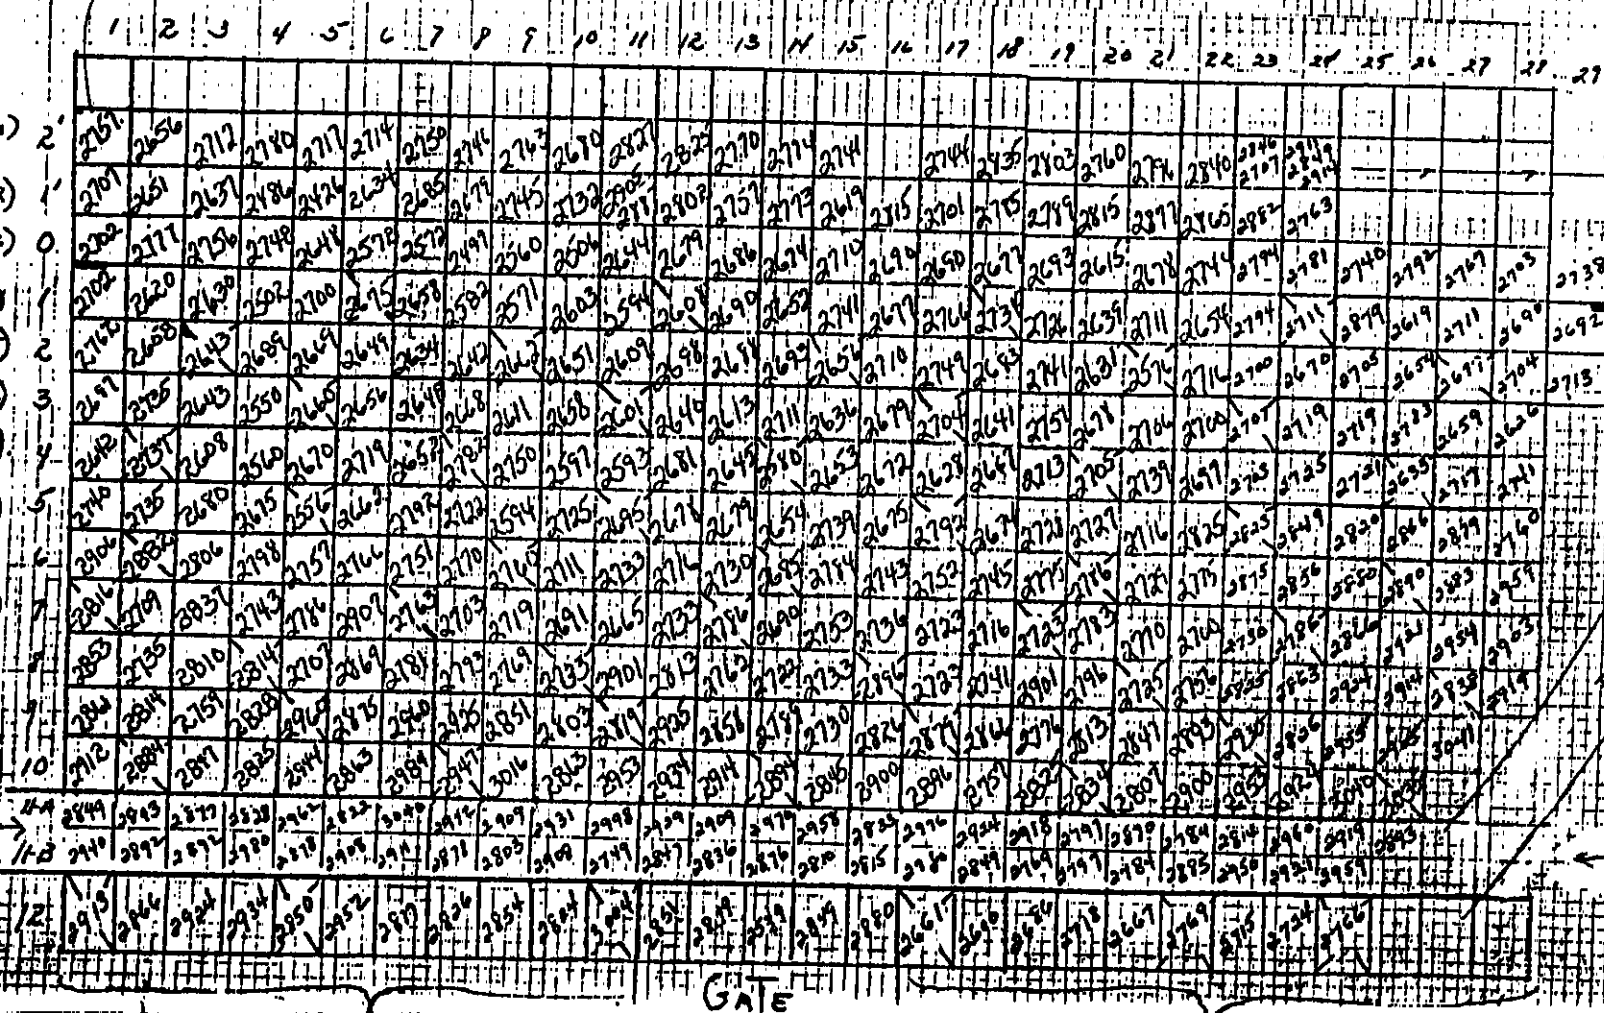 1 2 3 4 5 6 7 8 9 10 11 12 13 14 15 16 17 18 19 20 21 22 23 24 25 26 27 28 29
2' 2757 2656 2712 2780 2717 2714 2750 2746 2763 2680 2827 2825 2770 2774 2744 2744 2835 2803 2760 2796 2840 2846 2911
2707 2849
2914
1' 2707 2651 2637 2486 2426 2634 2685 2679 2745 2732 2905 2802 2757 2773 2619 2815 2701 2785 2789 2815 2877 2865 2882 2763
0 2702 2777 2756 2748 2648 2578 2572 2497 2560 2506 2644 2679 2686 2674 2710 2690 2680 2677 2693 2615 2678 2744 2794 2781 2740 2792 2767 2703 2738
1 2702 2620 2630 2502 2700 2675 2658 2582 2571 2603 2594 2608 2690 2652 2741 2677 2766 2734 2726 2639 2711 2654 2794 2711 2879 2619 2711 2690 2692
2 2762 2658 2643 2689 2669 2649 2634 2642 2662 2651 2609 2698 2688 2693 2656 2710 2749 2683 2741 2631 2576 2716 2700 2670 2705 2654 2677 2704 2713
3 2697 2735 2643 2550 2665 2656 2648 2668 2611 2658 2601 2640 2613 2711 2636 2679 2704 2641 2757 2678 2706 2700 2707 2719 2719 2783 2659 2626
4 2642 2737 2608 2560 2670 2719 2657 2782 2750 2597 2593 2681 2645 2580 2653 2672 2628 2667 2713 2705 2739 2697 2703 2725 2721 2635 2717 2741
5 2740 2735 2680 2675 2556 2662 2792 2722 2594 2725 2695 2678 2679 2654 2739 2675 2792 2674 2728 2727 2716 2825 2825 2849 2820 2866 2879 2760
6 2906 2882 2806 2798 2757 2766 2751 2770 2760 2711 2733 2716 2730 2685 2784 2743 2752 2745 2775 2786 2729 2775 2875 2856 2880 2890 2883 2959
7 2816 2709 2837 2743 2786 2907 2763 2703 2719 2691 2665 2733 2786 2690 2753 2736 2723 2716 2723 2783 2770 2700 2750 2786 2866 2921 2954 2903
8 2853 2735 2810 2814 2707 2869 2781 2793 2769 2735 2901 2813 2765 2722 2733 2896 2723 2741 2901 2796 2725 2756 2825 2823 2924 2914 2838 2919
9 2861 2814 2759 2828 2960 2875 2960 2925 2851 2803 2819 2925 2858 2789 2730 2826 2877 2862 2776 2813 2847 2893 2935 2836 2955 2925 3041
10 2912 2884 2847 2825 2944 2863 2989 2947 3016 2863 2953 2934 2914 2894 2845 2900 2896 2757 2825 2834 2807 2900 2953 2924 3040 2838
11-A 2849 2893 2877 2828 2962 2822 3040 2972 2909 2931 2998 2929 2909 2979 2958 2823 2976 2924 2918 2797 2870 2784 2814 2960 2919 2893
11-B 2940 2892 2892 2980 2878 2908 2911 2871 2803 2908 2749 2847 2836 2876 2810 2815 2980 2849 2769 2797 2784 2885 2950 2921 2959
12 2913 2866 2924 2934 2850 2952 2877 2826 2854 2884 3004 2851 2849 2539 2849 2880 2661 2690 2686 2718 2667 2769 2715 2724 2766
GATE